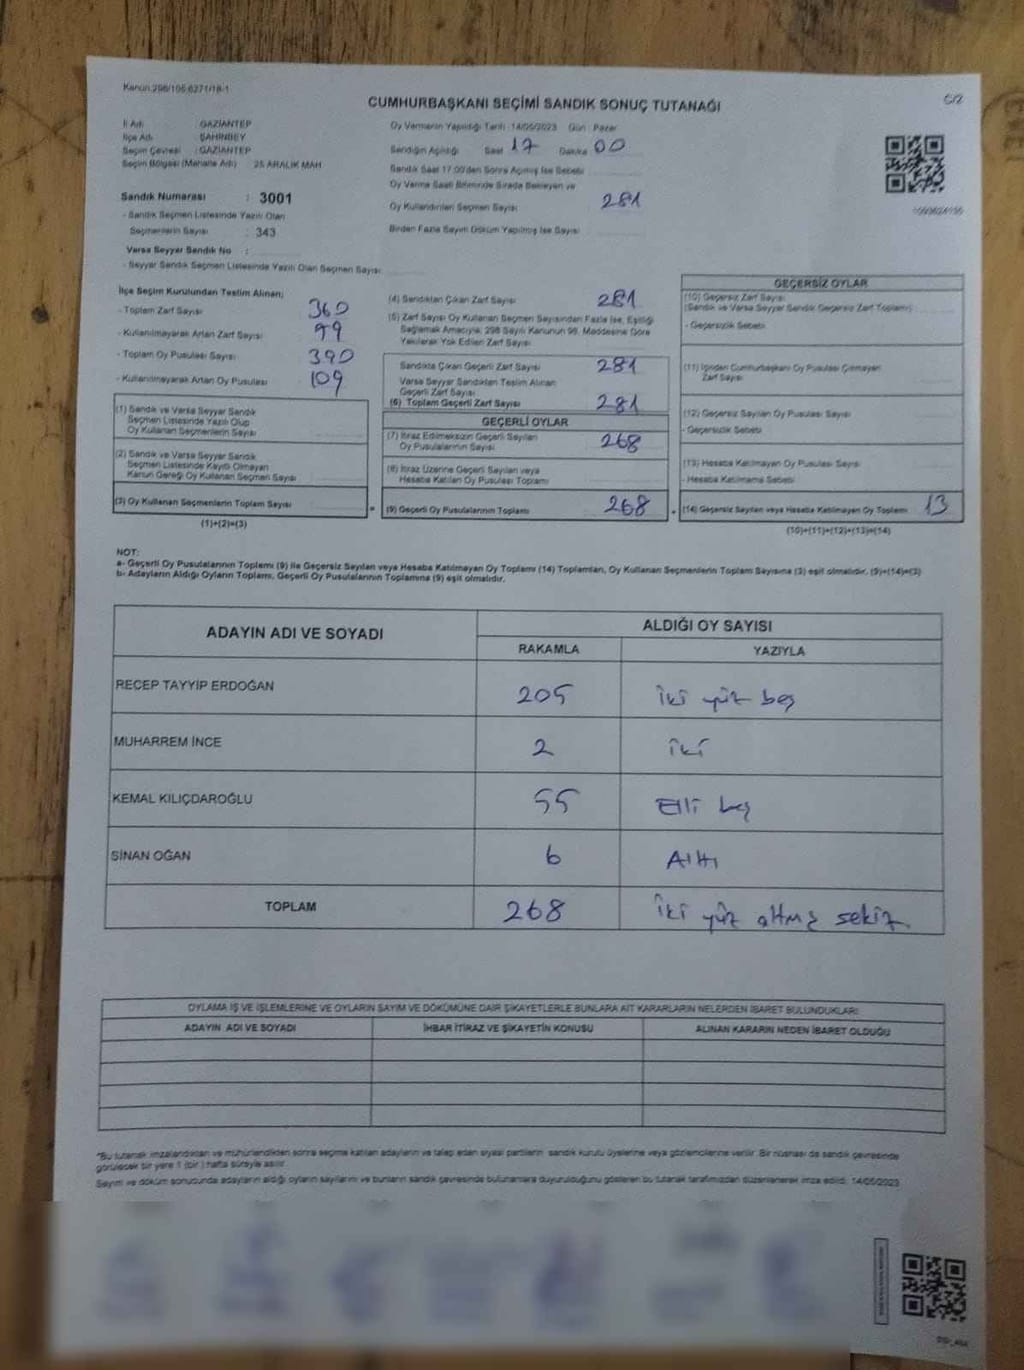 Kanun:298/105,6271/18-1
CUMHURBAŞKANI SEÇİMİ SANDIK SONUÇ TUTANAĞI
C/2
İl Adı : GAZİANTEP
İlçe Adı : ŞAHİNBEY
Seçim Çevresi : GAZİANTEP
Seçim Bölgesi (Mahalle Adı) : 25 ARALIK MAH
Sandık Numarası : 3001
- Sandık Seçmen Listesinde Yazılı Olan
Seçmenlerin Sayısı : 343
Varsa Seyyar Sandık No :
- Seyyar Sandık Seçmen Listesinde Yazılı Olan Seçmen Sayısı
Oy Vermenin Yapıldığı Tarih : 14/05/2023 Gün : Pazar
Sandığın Açıldığı Saat 17 Dakika 00
Sandık Saat 17:00'den Sonra Açılmış İse Sebebi
Oy Verme Saati Bitiminde Sırada Bekleyen ve
Oy Kullandırılan Seçmen Sayısı 281
Birden Fazla Sayım Döküm Yapılmış İse Sayısı
İlçe Seçim Kurulundan Teslim Alınan;
- Toplam Zarf Sayısı 360
- Kullanılmayarak Artan Zarf Sayısı 99
- Toplam Oy Pusulası Sayısı 390
- Kullanılmayarak Artan Oy Pusulası 109
(1) Sandık ve Varsa Seyyar Sandık
Seçmen Listesinde Yazılı Olup
Oy Kullanan Seçmenlerin Sayısı
(2) Sandık ve Varsa Seyyar Sandık
Seçmen Listesinde Kayıtlı Olmayan
Kanun Gereği Oy Kullanan Seçmen Sayısı
(3) Oy Kullanan Seçmenlerin Toplam Sayısı
(1)+(2)=(3)
(4) Sandıktan Çıkan Zarf Sayısı 281
(5) Zarf Sayısı Oy Kullanan Seçmen Sayısından Fazla İse, Eşitliği
Sağlamak Amacıyla, 298 Sayılı Kanunun 98. Maddesine Göre
Yakılarak Yok Edilen Zarf Sayısı
Sandıkta Çıkan Geçerli Zarf Sayısı 281
Varsa Seyyar Sandıktan Teslim Alınan
Geçerli Zarf Sayısı
(6) Toplam Geçerli Zarf Sayısı 281
GEÇERLİ OYLAR
(7) İtiraz Edilmeksizin Geçerli Sayılan
Oy Pusulalarının Sayısı 268
(8) İtiraz Üzerine Geçerli Sayılan veya
Hesaba Katılan Oy Pusulası Toplamı
= (9) Geçerli Oy Pusulalarının Toplamı 268
GEÇERSİZ OYLAR
(10) Geçersiz Zarf Sayısı
(Sandık ve Varsa Seyyar Sandık Geçersiz Zarf Toplamı)
- Geçersizlik Sebebi
(11) İçinden Cumhurbaşkanı Oy Pusulası Çıkmayan
Zarf Sayısı
(12) Geçersiz Sayılan Oy Pusulası Sayısı
- Geçersizlik Sebebi
(13) Hesaba Katılmayan Oy Pusulası Sayısı
- Hesaba Katılmama Sebebi
+ (14) Geçersiz Sayılan veya Hesaba Katılmayan Oy Toplamı 13
(10)+(11)+(12)+(13)=(14)
NOT:
a- Geçerli Oy Pusulalarının Toplamı (9) ile Geçersiz Sayılan veya Hesaba Katılmayan Oy Toplamı (14) Toplamları, Oy Kullanan Seçmenlerin Toplam Sayısına (3) eşit olmalıdır. (9)+(14)=(3)
b- Adayların Aldığı Oyların Toplamı, Geçerli Oy Pusulalarının Toplamına (9) eşit olmalıdır.
ADAYIN ADI VE SOYADI
ALDIĞI OY SAYISI
RAKAMLA YAZIYLA
RECEP TAYYİP ERDOĞAN 205 iki yüz beş
MUHARREM İNCE 2 iki
KEMAL KILIÇDAROĞLU 55 Elli beş
SİNAN OĞAN 6 Altı
TOPLAM 268 iki yüz altmış sekiz
OYLAMA İŞ VE İŞLEMLERİNE VE OYLARIN SAYIM VE DÖKÜMÜNE DAİR ŞİKAYETLERLE BUNLARA AİT KARARLARIN NELERDEN İBARET BULUNDUKLARI
ADAYIN ADI VE SOYADI İHBAR İTİRAZ VE ŞİKAYETİN KONUSU ALINAN KARARIN NEDEN İBARET OLDUĞU
*Bu tutanak imzalandıktan ve mühürlendikten sonra seçime katılan adayların ve talep eden siyasi partilerin sandık kurulu üyelerine veya gözlemcilerine verilir. Bir nüshası da sandık çevresinde
görülecek bir yere 1 (bir) hafta süreyle asılır.
Sayım ve döküm sonucunda adayların aldığı oyların sayılarını ve bunların sandık çevresinde bulunanlara duyurulduğunu gösteren bu tutanak tarafımızdan düzenlenerek imza edildi. 14/05/2023